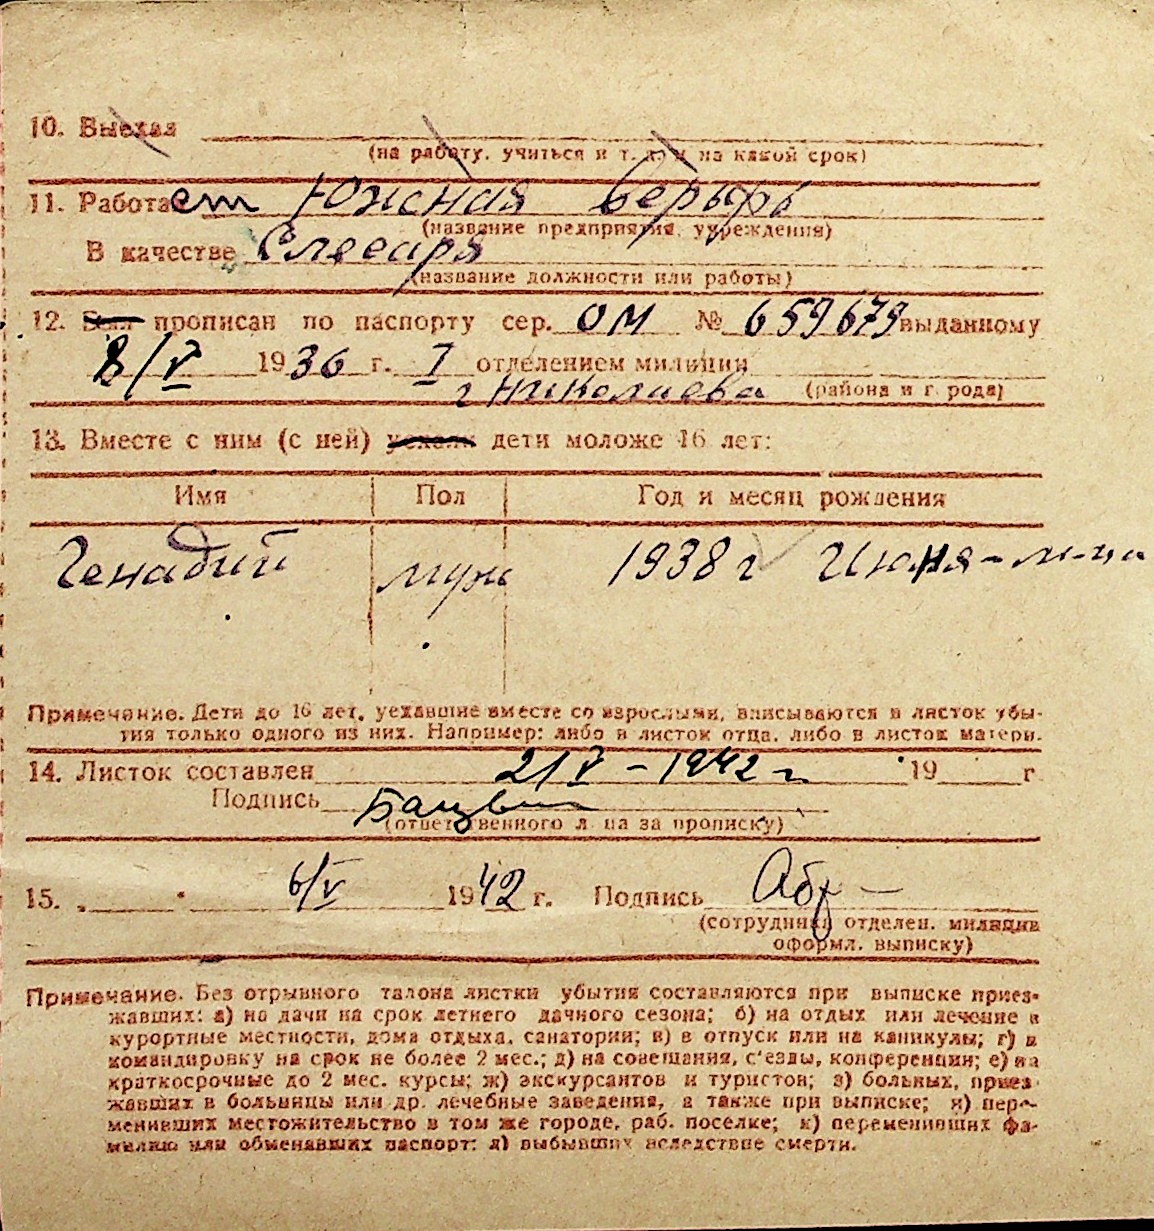 10. Выехал
(на работу, учиться и т. д. и на какой срок)
11. Работает Южная верьфь
(название предприятия, учреждения)
В качестве Слесаря
(название должности или работы)
12. Был прописан по паспорту сер. ОМ № 659679 выданному
8/V 1936 г. I отделением милиции
г Николаева (района и города)
13. Вместе с ним (с ней) уехали дети моложе 16 лет:
Имя Пол Год и месяц рождения
Генадий муж 1938 г Июня-м-ца
Примечание. Дети до 16 лет, уехавшие вместе со взрослыми, вписываются в листок убы-
тия только одного из них. Например: либо в листок отца, либо в листок матери.
14. Листок составлен 2/V - 1942 г 19 г
Подпись
(ответственного лица за прописку)
15. 6/V 1942 г. Подпись
(сотрудника отделен. милиции
оформл. выписку)
Примечание. Без отрывного талона листки убытия составляются при выписке приез-
жавших: а) на дачи на срок летнего дачного сезона; б) на отдых или лечение в
курортные местности, дома отдыха, санатории; в) в отпуск или на каникулы; г) в
командировку на срок не более 2 мес.; д) на совещания, с'езды, конференции; е) на
краткосрочные до 2 мес. курсы; ж) экскурсантов и туристов; з) больных, приез-
жавших в больницы или др. лечебные заведения, а также при выписке; и) пере-
менивших местожительство в том же городе, раб. поселке; к) переменивших фа-
милию или обменявших паспорт; л) выбывших вследствие смерти.